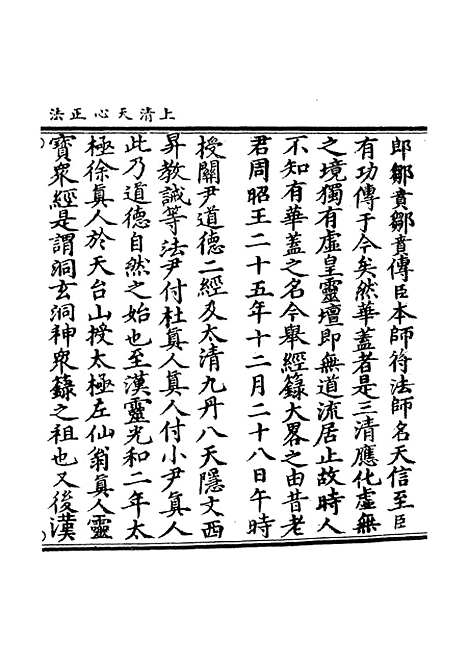 上清天心正法
郎鄒賁鄒賁傳臣本師符法師名天信至臣
有功傳于今矣然華蓋者是三清應化虛無
之境獨有虛皇靈壇即無道流居止故時人
不知有華蓋之名今舉經籙大畧之由昔老
君周昭王二十五年十二月二十八日午時
授關尹道德二經及太清九丹八天隱文西
昇教誡等法尹付杜真人真人付小尹真人
此乃道德自然之始也至漢靈光和二年太
極徐真人於天台山授太極左仙翁真人靈
寶衆經是謂洞玄洞神衆籙之祖也又後漢